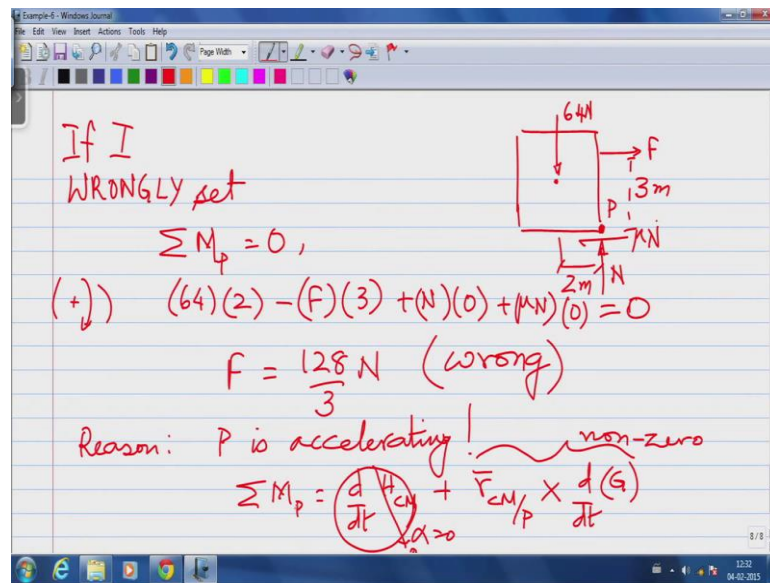 Example-6 - Windows Journal
File Edit View Insert Actions Tools Help
Page Width
If I
WRONGLY set
ΣM_p = 0,
(+) (64)(2) - (F)(3) + (N)(0) + (μN)(0) = 0
F = 128/3 N (wrong)
Reason: P is accelerating!
non-zero
ΣM_p = d/dt H_CM + r̄_CM/P × d/dt (G)
α=0
64N
F
3m
P
μN
2m
N
8/8
12:32
04-02-2015